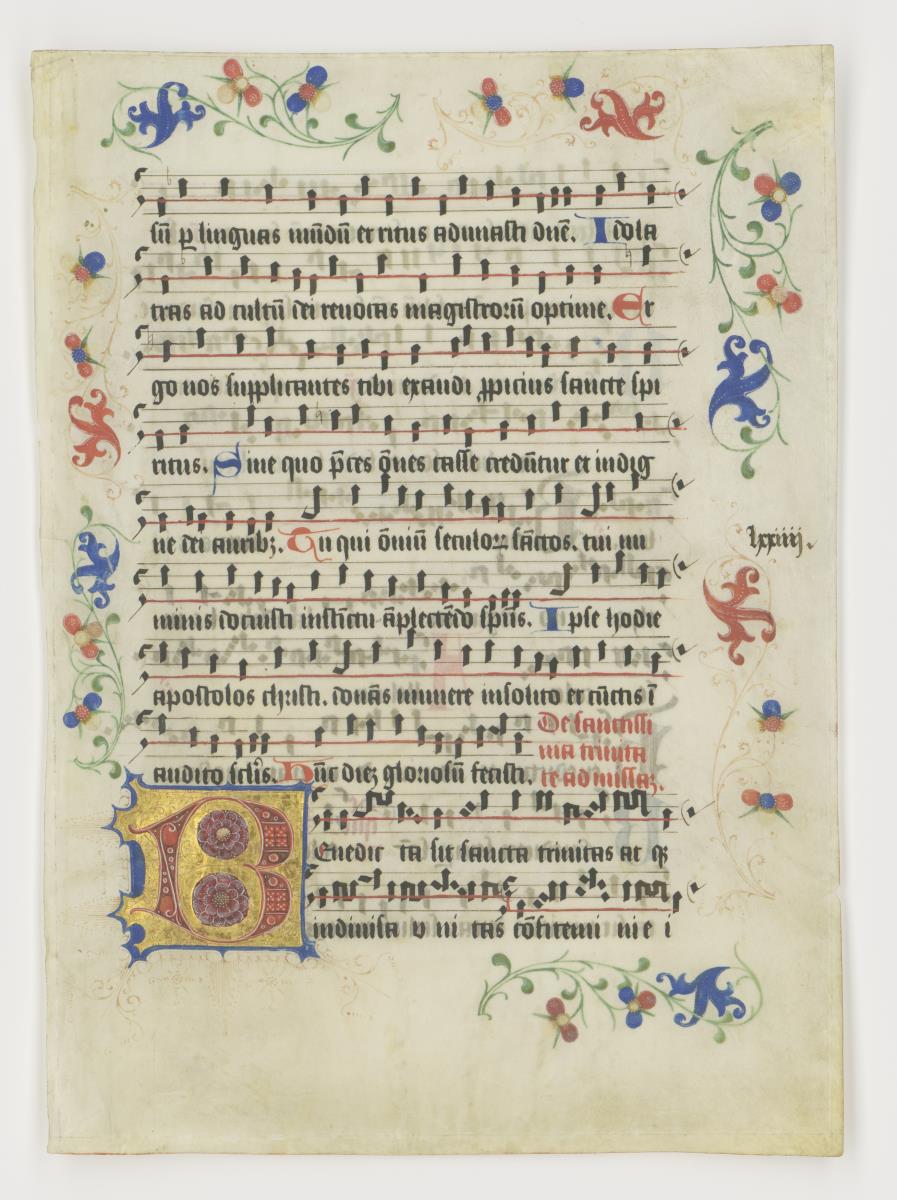 sū ꝑ linguas mūdū et ritus adunasti dn̄e. Idola
tras ad cultū dei reuocas magistrorū optime. Er
go uos supplicantes tibi exaudi ꝓpicius sancte spi
ritus. Sine quo p̄ces om̄es casse credūtur et indig
ne dei auribꝫ. Tu qui om̄iū seculoꝝ sāctos. tui nu
minis docuisti instīctu āplectēdo sp̄us. Ipse hodie
apostolos christi. donās munere insolito et cūctis ī
audito sclīs. Hūc dieꝫ gloriosū fecisti.
De sanctissi
ma trinita
te ad missaꝫ.
lxxiiij.
BEnedic ta sit sancta trinitas at qꝫ
indiuisa v ni tas cōfitemi ni e i